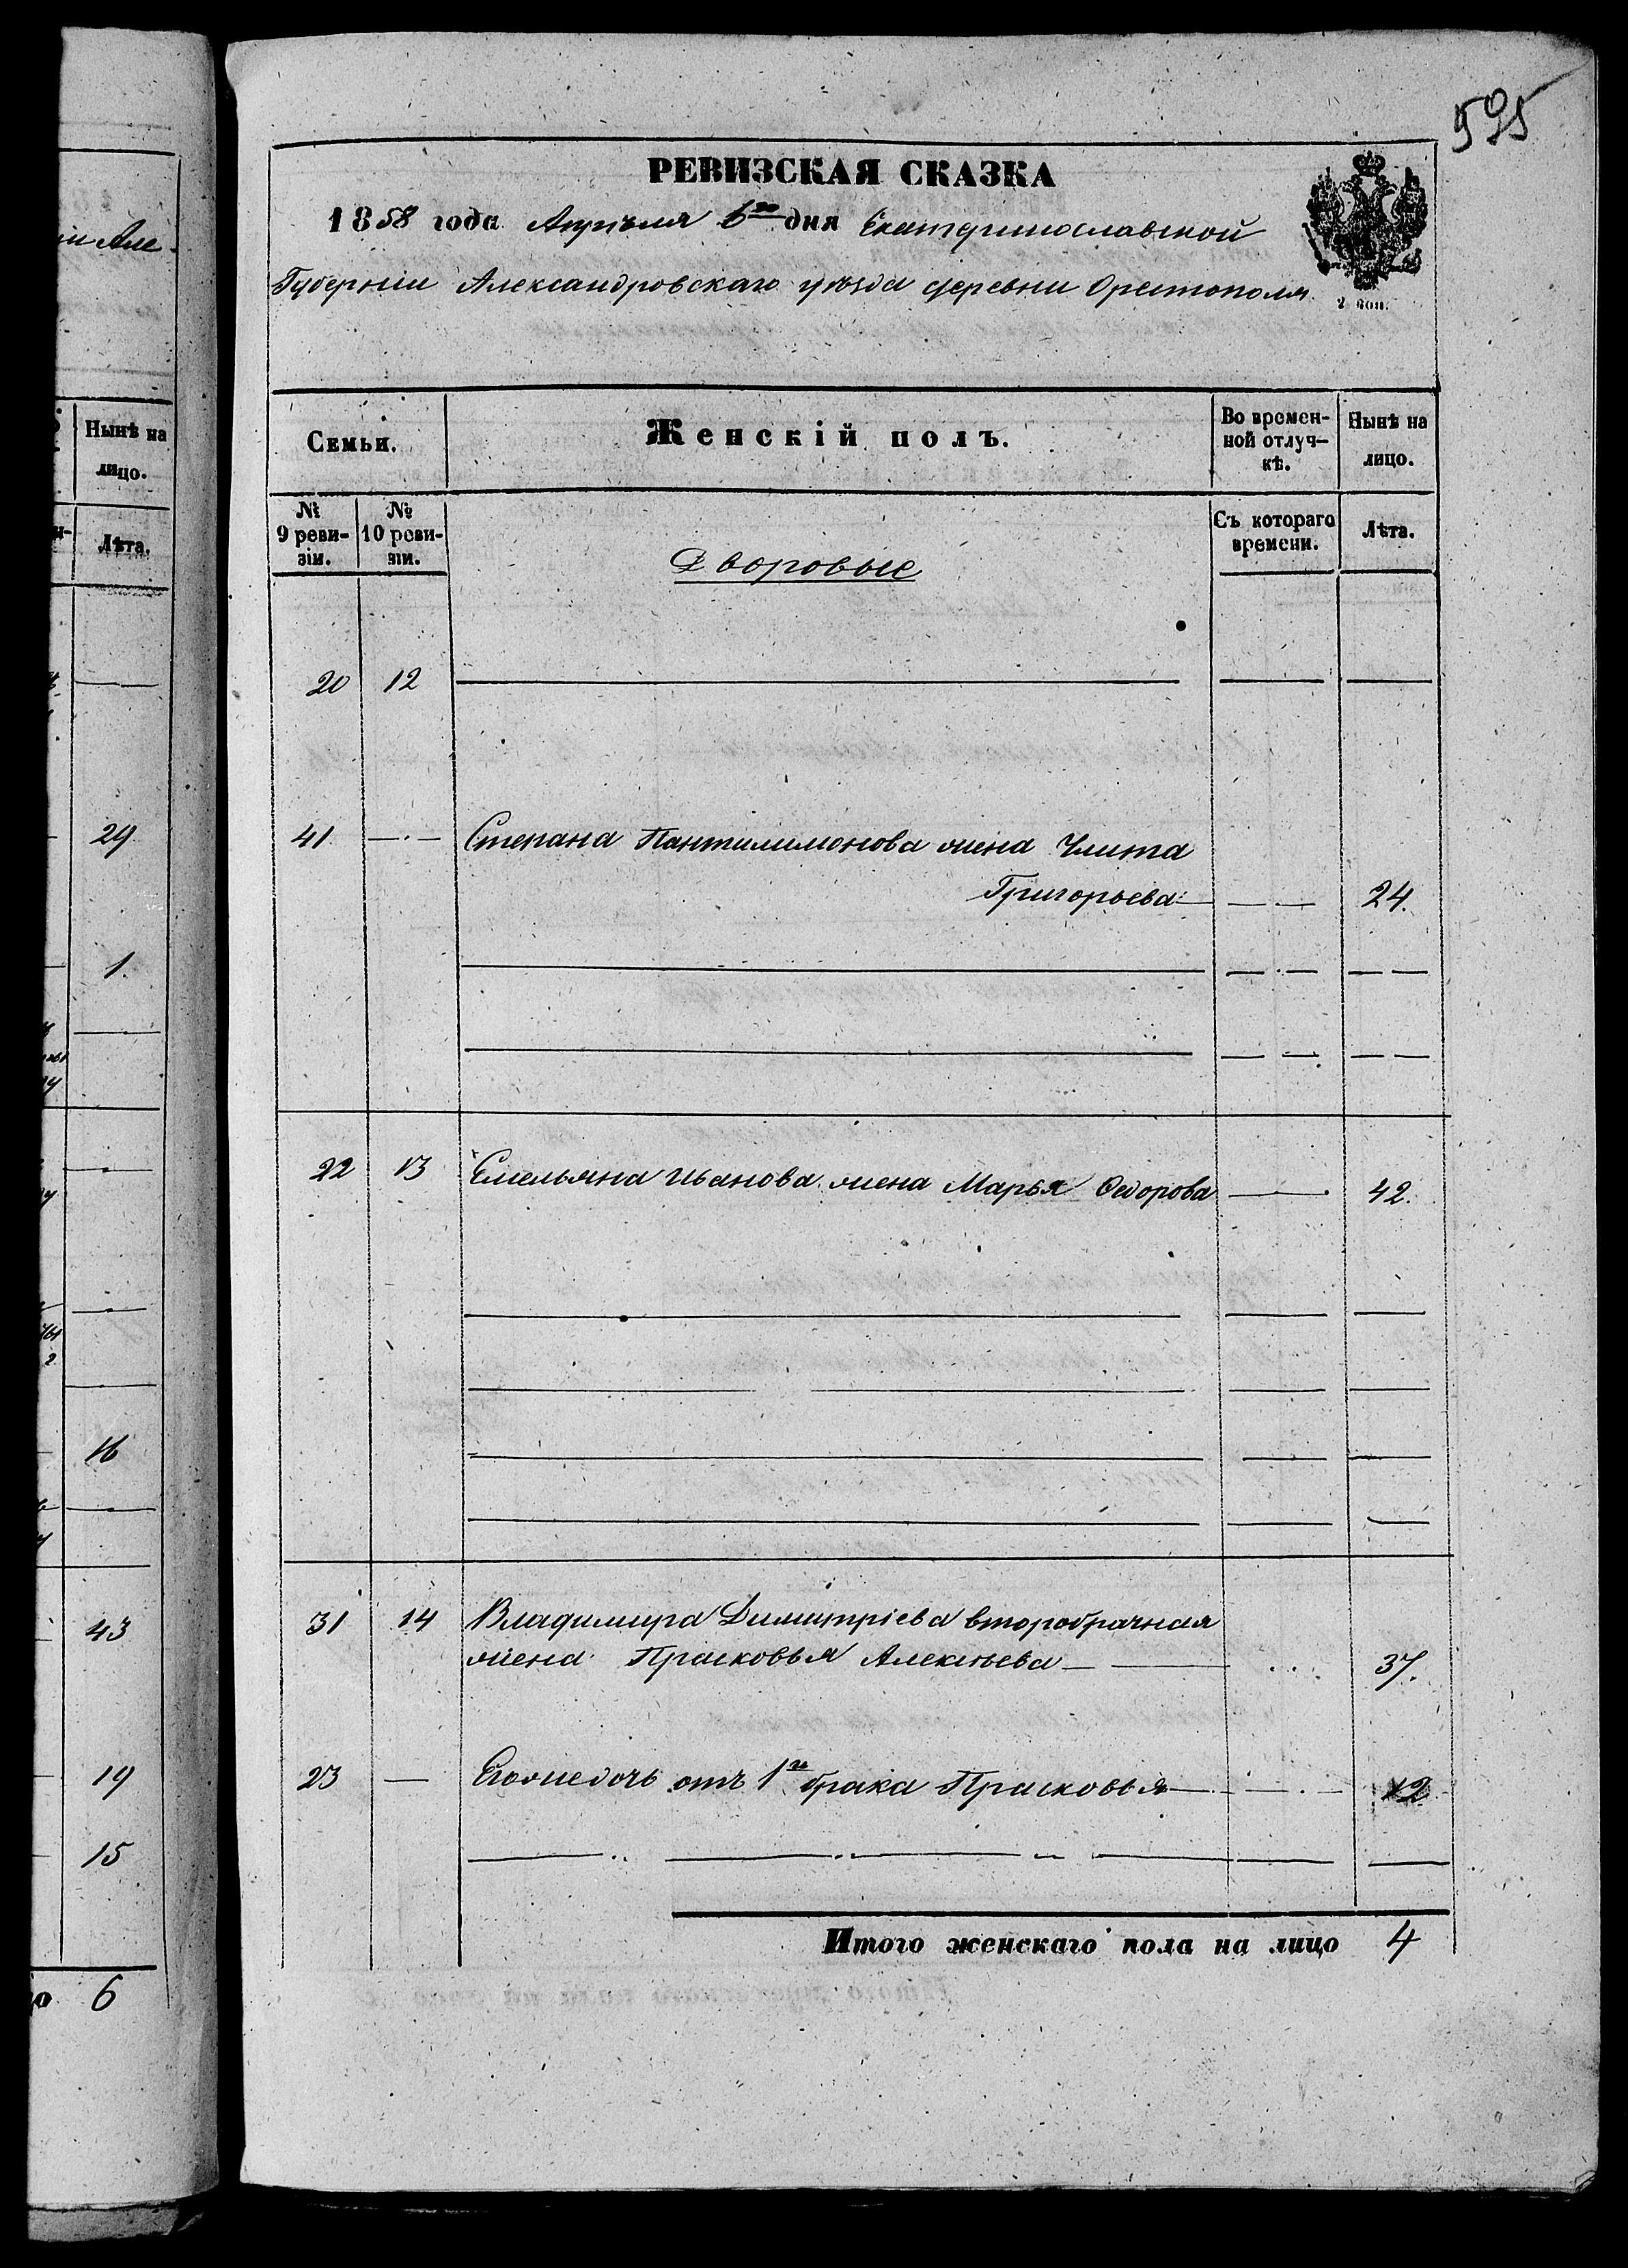 595
РЕВИЗСКАЯ СКАЗКА
1858 года Апрѣля 6го дня Екатеринославской
Губерніи Александровскаго уѣзда деревни Орестополя
2 коп.
Семьи.
Женскій полъ.
Во временной отлучкѣ.
Нынѣ на лицо.
№ 9 ревизіи.
№ 10 ревизіи.
Дворовые
Съ котораго времени.
Лѣта.
20 12
41 Степана Пантилимонова жена Улита
Григорьева 24.
22 13 Емельяна Иванова жена Марья Ѳедорова 42.
31 14 Владимира Димитріева второбрачная
жена Прасковья Алексѣева 37.
23 Егоже дочь отъ 1го брака Прасковья 12
Итого женскаго пола на лицо 4
и Але
Нынѣ на
лицо.
Лѣта.
29
1.
16
43
19
15
6